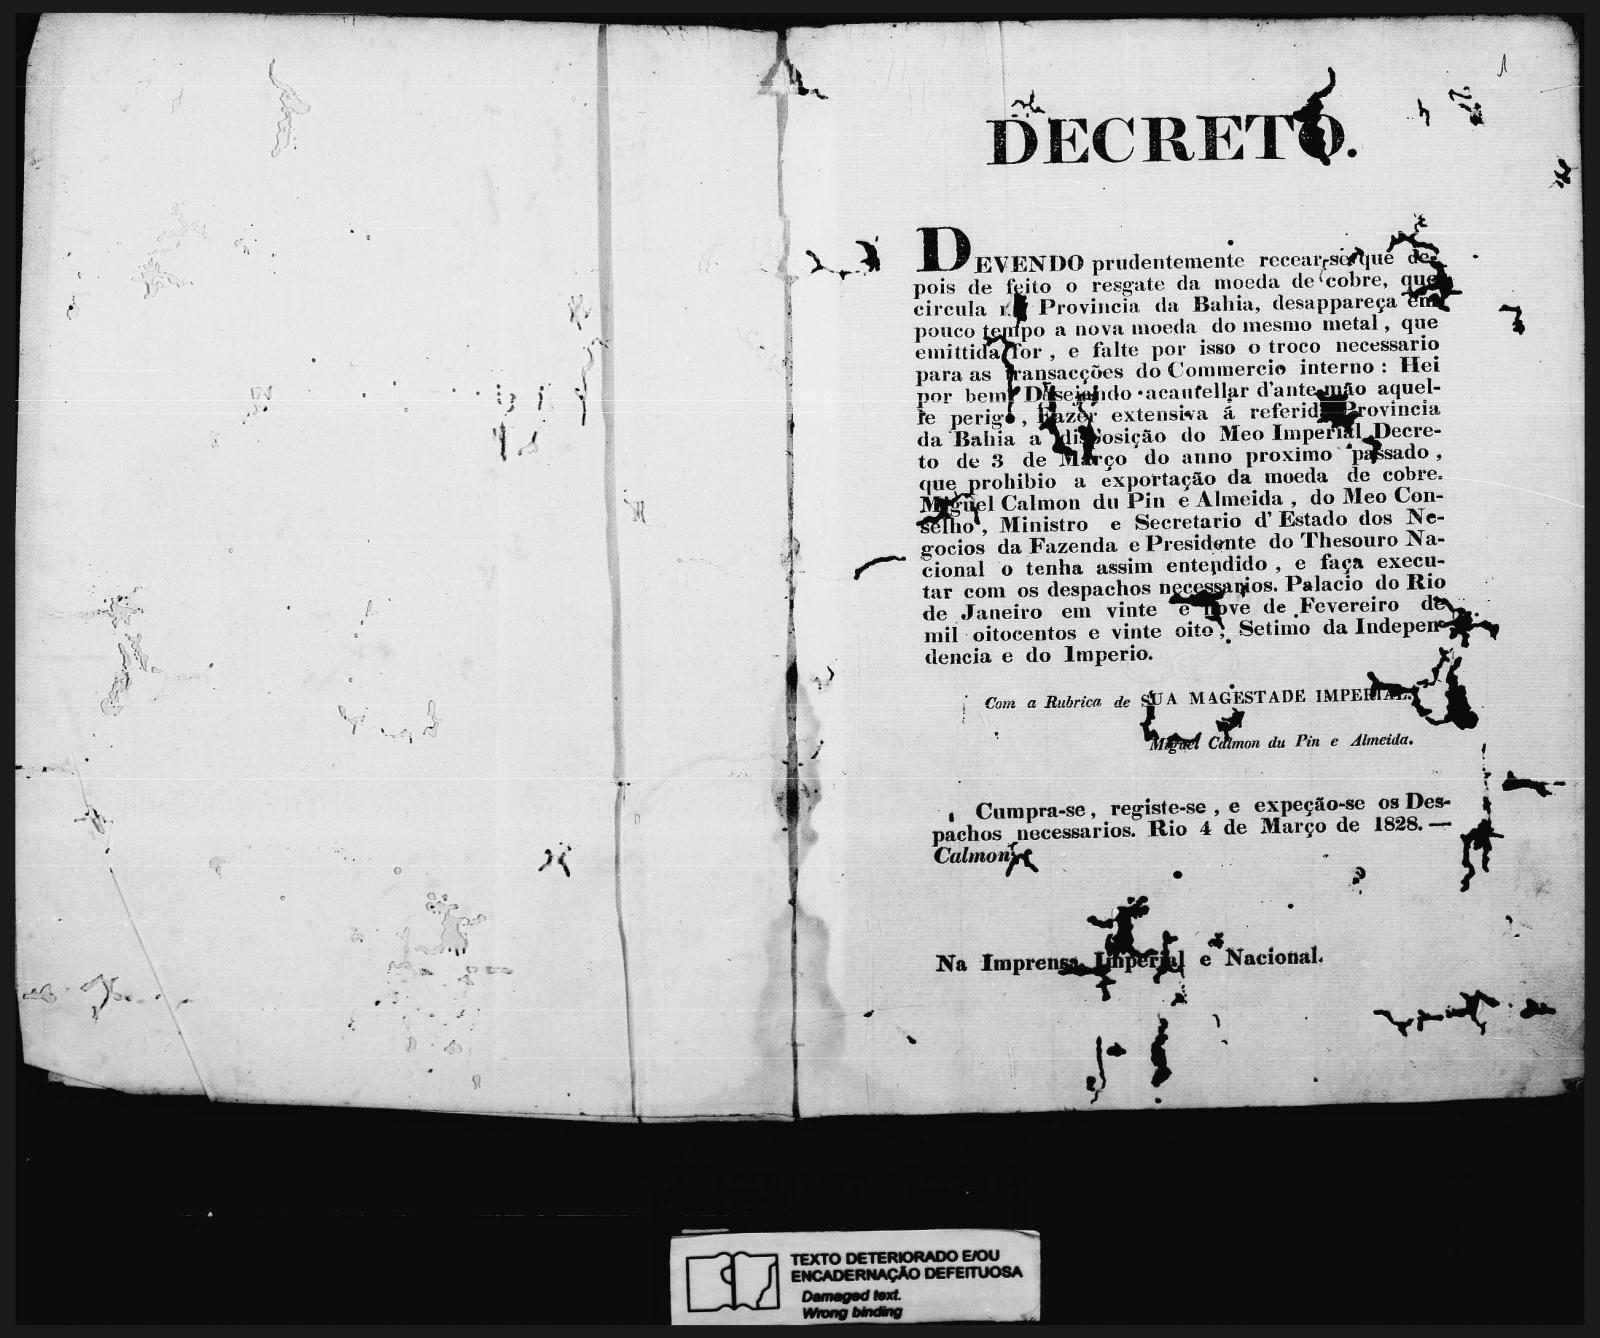 1
DECRETO.
DEVENDO prudentemente recear-se que de-
pois de feito o resgate da moeda de cobre, que
circula na Provincia da Bahia, desappareça em
pouco tempo a nova moeda do mesmo metal, que
emittida for, e falte por isso o troco necessario
para as transacções do Commercio interno: Hei
por bem, Desejando acautellar d'ante mão aquel-
le perigo, Fazer extensiva á referida Provincia
da Bahia a disposição do Meo Imperial Decre-
to de 3 de Março do anno proximo passado,
que prohibio a exportação da moeda de cobre.
Miguel Calmon du Pin e Almeida, do Meo Con-
selho, Ministro e Secretario d'Estado dos Ne-
gocios da Fazenda e Presidente do Thesouro Na-
cional o tenha assim entendido, e faça execu-
tar com os despachos necessarios. Palacio do Rio
de Janeiro em vinte e nove de Fevereiro de
mil oitocentos e vinte oito, Setimo da Indepen-
dencia e do Imperio.
Com a Rubrica de SUA MAGESTADE IMPERIAL.
Miguel Calmon du Pin e Almeida.
Cumpra-se, registe-se, e expeção-se os Des-
pachos necessarios. Rio 4 de Março de 1828. —
Calmon.
Na Imprensa Imperial e Nacional.
TEXTO DETERIORADO E/OU
ENCADERNAÇÃO DEFEITUOSA
Damaged text.
Wrong binding